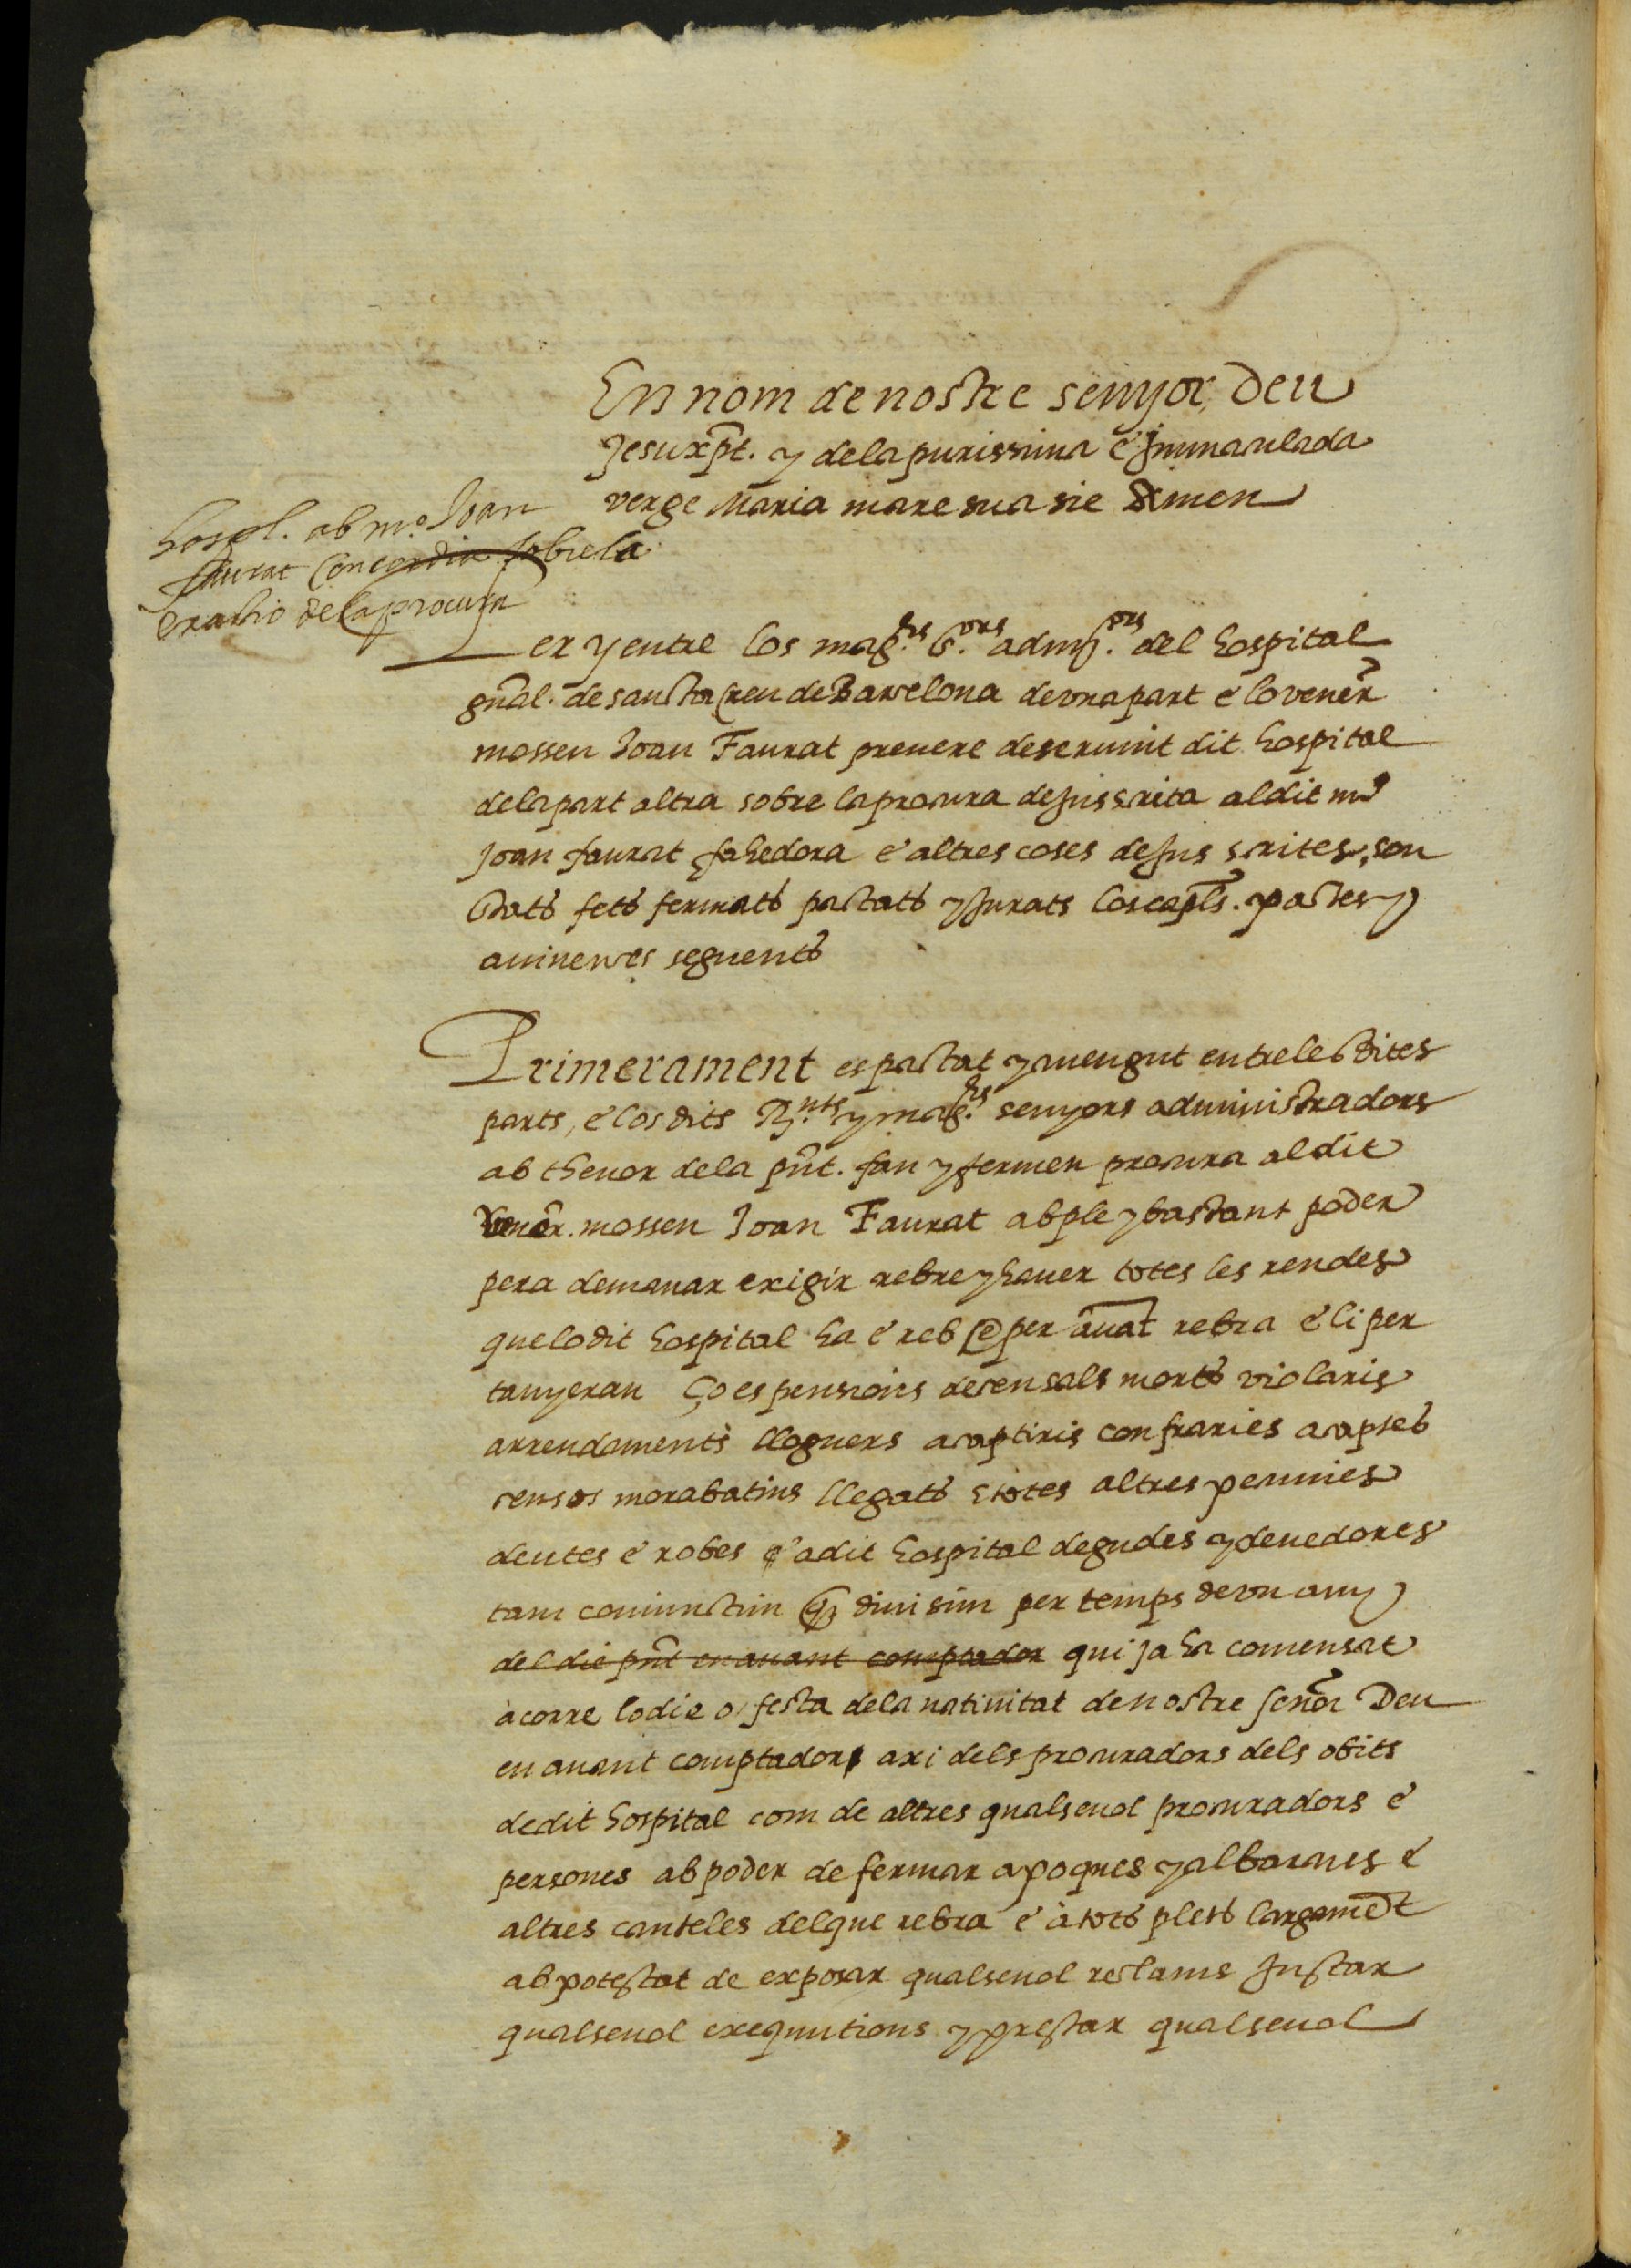 En nom de nostre senyor Deu
Jesuxp̃t. y dela purissima é Jmmaculada
verge Maria mare sua sie Amen
hospl. ab mº. Joan
faurat Concordia sobre la
exactio de la procura
Per y entre los mag.chs s.ors admj.ors del hospital
gñal. de sancta Creu de Barcelona de vna part é lo vener̃
mossen Joan Faurat preuere deseruint dit hospital
dela part altra sobre la procura dejus scrita al dit mº
Joan faurat fahedora é altres coses dejus scrites, son
stats fets fermats pactats y jurats los capls̃. pactes y
auinences seguents
Primerament es pactat y auengut entre les dites
parts, é los dits R.nts y mag.chs senyors administradors
ab thenor dela pñt. fan y fermen procura al dit
vener̃. mossen Joan Faurat ab ple y bastant poder
pera demanar exigir rebre y hauer totes les rendes
que lo dit hospital ha é reb e per auãt rebra é li per
tanyeran Ço es pensions de censals morts violaris
arrendaments lloguers acaptiris confraries acaptes
censos morabatins llegats e totes altres pecunies
deutes é robes é a dit hospital degudes y deuedores
tam coniunctim q̃ diuisim per temps de vn any
del die pñt en auant comptador qui ja ha comensat
à corre lo die o festa dela natiuitat de nostre señor Deu
en auant comptador axi dels procuradors dels obits
de dit hospital com de altres qualseuol procuradors é
persones ab poder de fermar apoques y albarans é
altres cauteles del que rebra é à tots plets largamẽt
ab potestat de exposar qualseuol reclams Jnstar
qualseuol exequutions y prestar qualseuol